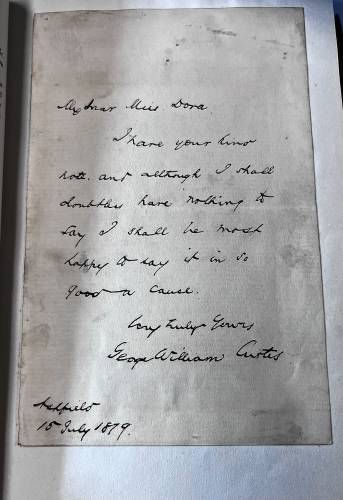 My dear Miss Dora
I have your kind
note. and although I shall
doubtless have nothing to
say I shall be most
happy to say it in so
good a cause.
Very truly Yours
George William Curtis
Ashfield
15 July 1879.